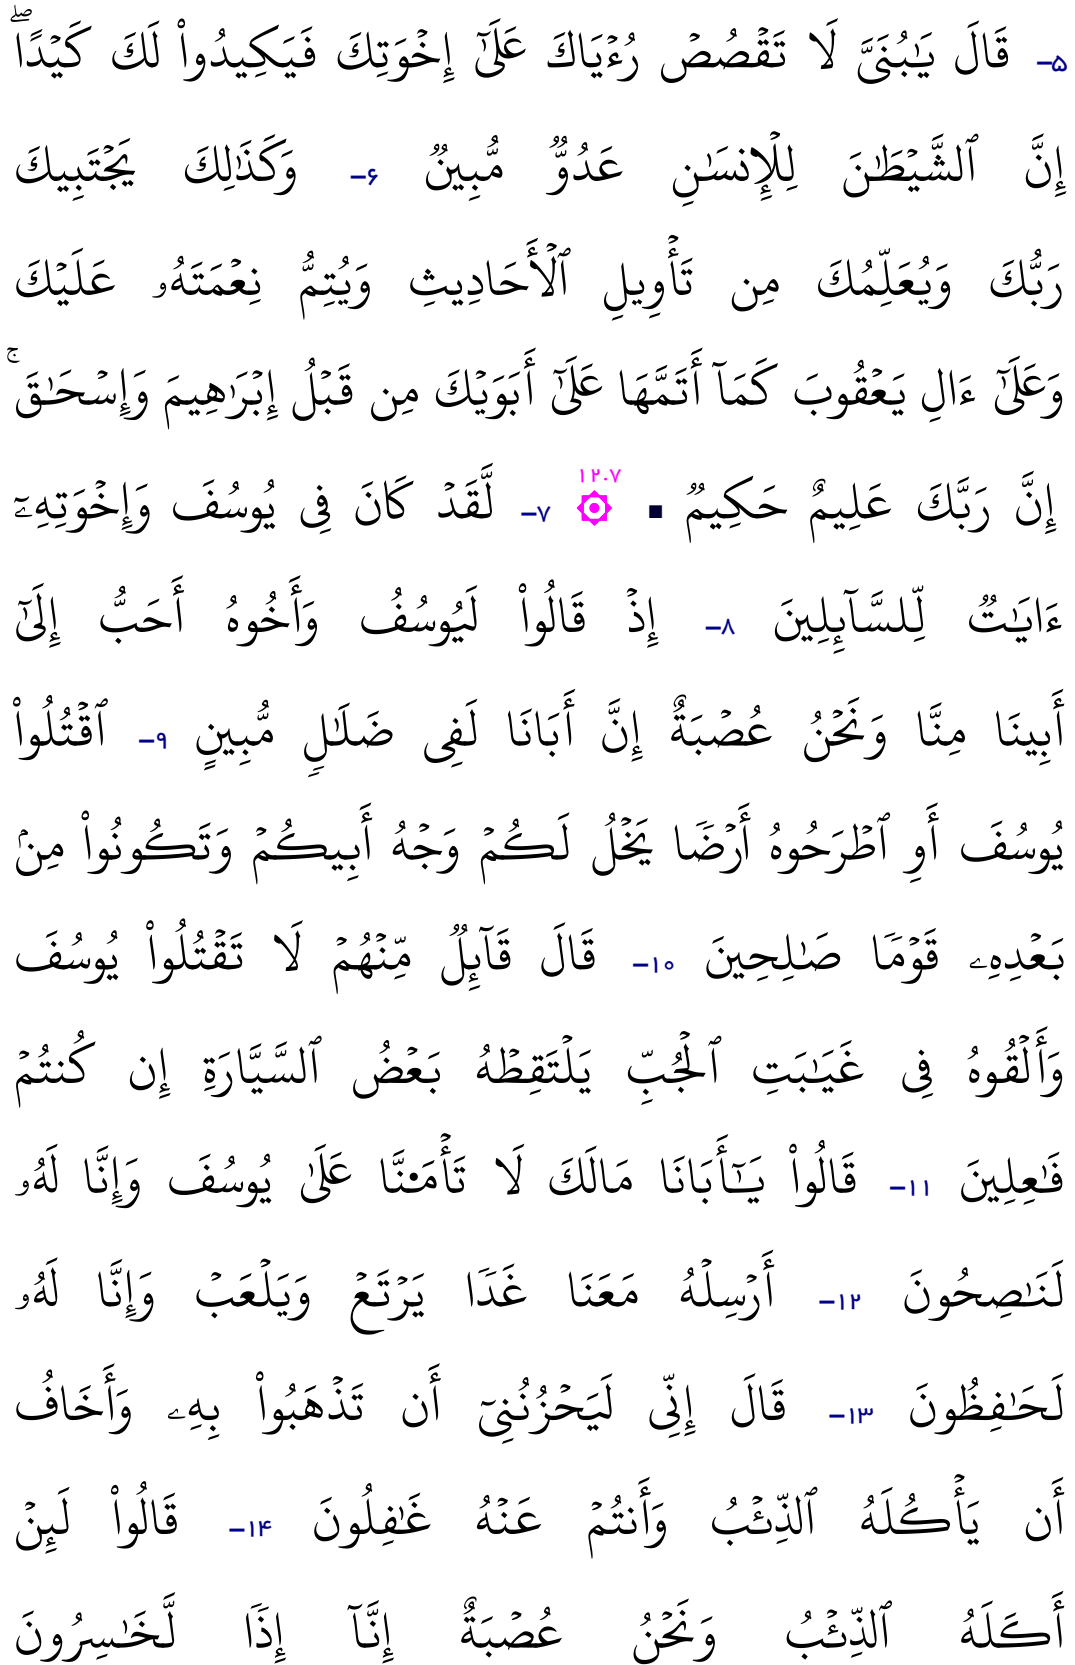 ۵- قَالَ يَـٰبُنَىَّ لَا تَقۡصُصۡ رُءۡيَاكَ عَلَىٰٓ إِخۡوَتِكَ فَيَكِيدُواْ لَكَ كَيۡدًاۖ
إِنَّ ٱلشَّيۡطَـٰنَ لِلۡإِنسَـٰنِ عَدُوٌّ مُّبِينٌ ۶- وَكَذَٲلِكَ يَجۡتَبِيكَ
رَبُّكَ وَيُعَلِّمُكَ مِن تَأۡوِيلِ ٱلۡأَحَادِيثِ وَيُتِمُّ نِعۡمَتَهُۥ عَلَيۡكَ
وَعَلَىٰٓ ءَالِ يَعۡقُوبَ كَمَآ أَتَمَّهَا عَلَىٰٓ أَبَوَيۡكَ مِن قَبۡلُ إِبۡرَٲهِيمَ وَإِسۡحَـٰقَۚ
إِنَّ رَبَّكَ عَلِيمٌ حَكِيمٌ ▪ ۞ ۱۲۰۷ ۷- لَّقَدۡ كَانَ فِى يُوسُفَ وَإِخۡوَتِهِۦٓ
ءَايَـٰتٌ لِّلسَّآٮِٕلِينَ ۸- إِذۡ قَالُواْ لَيُوسُفُ وَأَخُوهُ أَحَبُّ إِلَىٰٓ
أَبِينَا مِنَّا وَنَحۡنُ عُصۡبَةٌ إِنَّ أَبَانَا لَفِى ضَلَـٰلٍ مُّبِينٍ ۹- ٱقۡتُلُواْ
يُوسُفَ أَوِ ٱطۡرَحُوهُ أَرۡضًا يَخۡلُ لَكُمۡ وَجۡهُ أَبِيكُمۡ وَتَكُونُواْ مِنۢ
بَعۡدِهِۦ قَوۡمًا صَـٰلِحِينَ ۱۰- قَالَ قَآٮِٕلٌ مِّنۡهُمۡ لَا تَقۡتُلُواْ يُوسُفَ
وَأَلۡقُوهُ فِى غَيَـٰبَتِ ٱلۡجُبِّ يَلۡتَقِطۡهُ بَعۡضُ ٱلسَّيَّارَةِ إِن كُنتُمۡ
فَـٰعِلِينَ ۱۱- قَالُواْ يَـٰٓأَبَانَا مَالَكَ لَا تَأۡمَ۬نَّا عَلَىٰ يُوسُفَ وَإِنَّا لَهُۥ
لَنَـٰصِحُونَ ۱۲- أَرۡسِلۡهُ مَعَنَا غَدًا يَرۡتَعۡ وَيَلۡعَبۡ وَإِنَّا لَهُۥ
لَحَـٰفِظُونَ ۱۳- قَالَ إِنِّى لَيَحۡزُنُنِىٓ أَن تَذۡهَبُواْ بِهِۦ وَأَخَافُ
أَن يَأۡكُلَهُ ٱلذِّئۡبُ وَأَنتُمۡ عَنۡهُ غَـٰفِلُونَ ۱۴- قَالُواْ لَٮِٕنۡ
أَكَلَهُ ٱلذِّئۡبُ وَنَحۡنُ عُصۡبَةٌ إِنَّآ إِذًا لَّخَـٰسِرُونَ